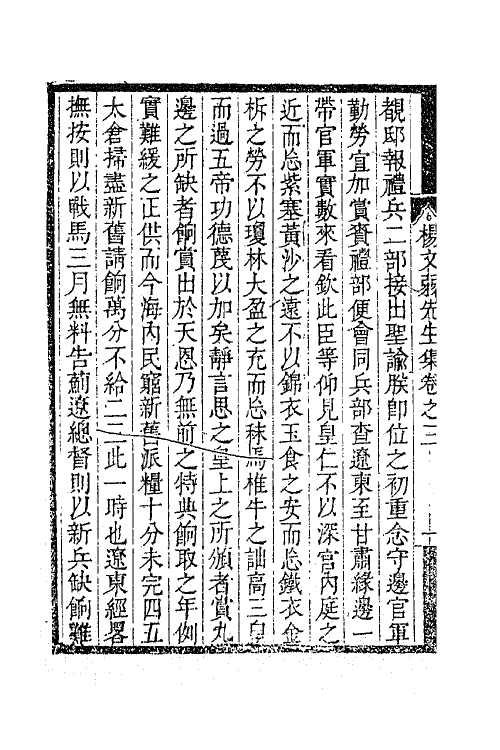 覩邸報禮兵二部接出聖諭朕卽位之初重念守邊官軍
勤勞宜加賞賚禮部便會同兵部查遼東至甘肅緣邊一
帶官軍實數來看欽此臣等仰見皇仁不以深宮內庭之
近而忘紫塞黃沙之遠不以錦衣玉食之安而忘鐵衣金
柝之勞不以瓊林大盈之充而忘秣馬椎牛之詘高三皇
而過五帝功德蔑以加矣靜言思之皇上之所頒者賞九
邊之所缺者餉賞出於天恩乃無前之特典餉取之年例
實難緩之正供而今海內民窮新舊派糧十分未完四五
太倉掃盡新舊請餉萬分不給二三此一時也遼東經畧
撫按則以戰馬三月無料告薊遼總督則以新兵缺餉難
楊文弱先生集卷之三
一